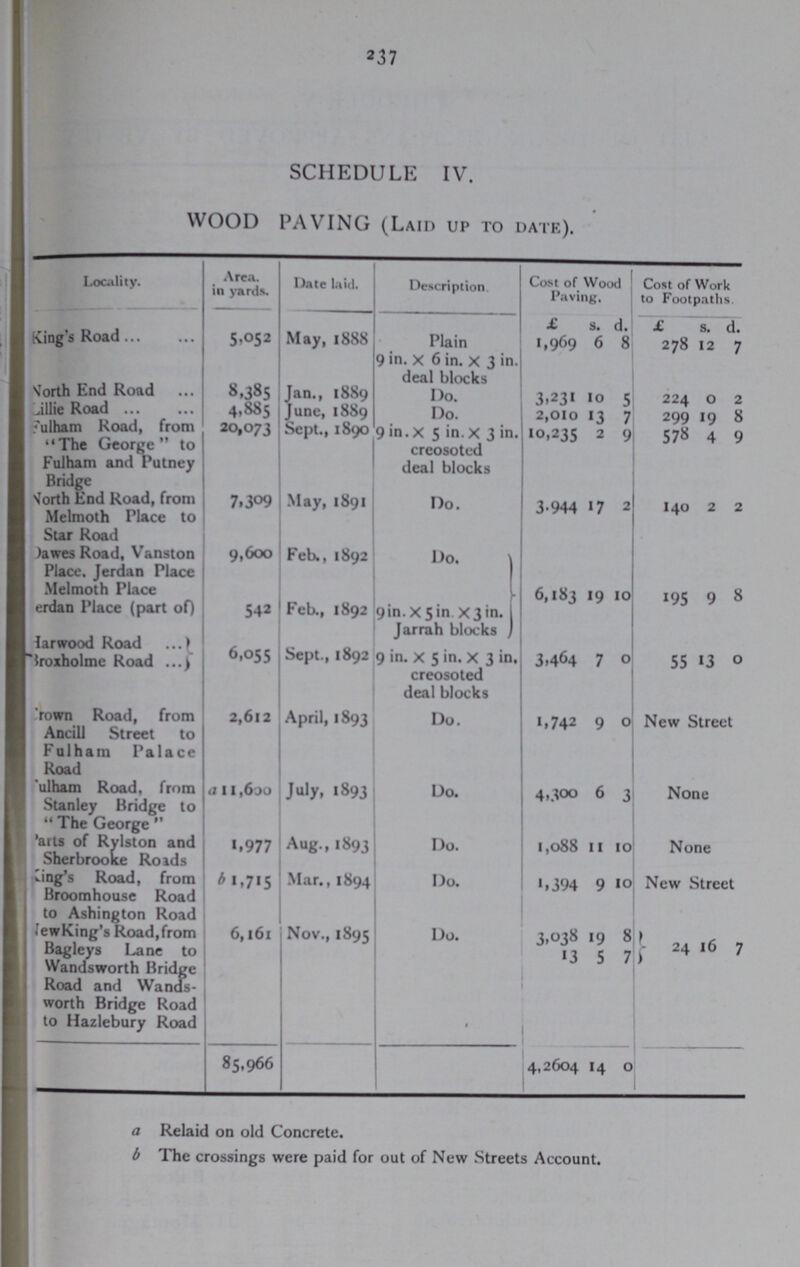 237
SCHEDULE IV.
WOOD PAVING (LAID UP TO DATE).
Locality. Area. in yards. Date laid. Description. Cost of Wood Paving. Cost of Work to Footpaths.
£ s. d. £ s. d.
King's Road ... ... 5,052 May, 1888 Plain 1,969 6 8 278 12 7
9 in. X 6 in. X 3 in.
deal blocks
North End Road ... 8,385 Jan., 1889 Do. 3,231 10 5 224 0 2
Lillie Road ... ... 4,885 June, 1889 Do. 2,010 13 7 299 19 8
Fulham Road, from 20,073 Sept., 1890 9 in. X 5 in. X 3 in. 10,235 2 9 578 4 9
"The George" to creosoted
Fulham and Putney deal blocks
Bridge
North End Road, from 7,309 May, 1891 Do. 3.944 17 2 140 2 2
Melmoth Place to
Star Road
Dawes Road, Vanston 9,600 Feb., 1892 Do. }
Place, Jerdan Place
Melmoth Place 6,183 19 10 195 9 8
erdan Place (part of) 542 Feb., 1892 9in. X 5in X 3in.
Jarrah blocks
Harwood Road ... }
Broxholme Road ... } 6,055 Sept., 1892 9 in. X 5 in. X 3 in. 3,464 7 0 55 13 0
creosoted
deal blocks
Crown Road, from 2,612 April, 1893 Do. 1,742 9 0 New Street
Ancill Street to
Fulham Palace
Road
Fulham Road, from a 11,600 July, 1893 Do. 4,300 6 3 None
Stanley Bridge to
"The George"
Parts of Rylston and 1,977 Aug., 1893 Do. 1,088 11 10 None
Sherbrooke Roads
King's Road, from b 1,715 Mar., 1894 Do. 1,394 9 10 New Street
Broomhouse Road
to Ashington Road
NewKing's Road, from 6,161 Nov., 1895 Do. 3,038 19 8 } 24 16 7
Bagleys Lane to 13 5 7 }
Wandsworth Bridge
Road and Wands-
worth Bridge Road
to Hazlebury Road
85,966 4,2604 14 0
a Relaid on old Concrete.
b The crossings were paid for out of New Streets Account.